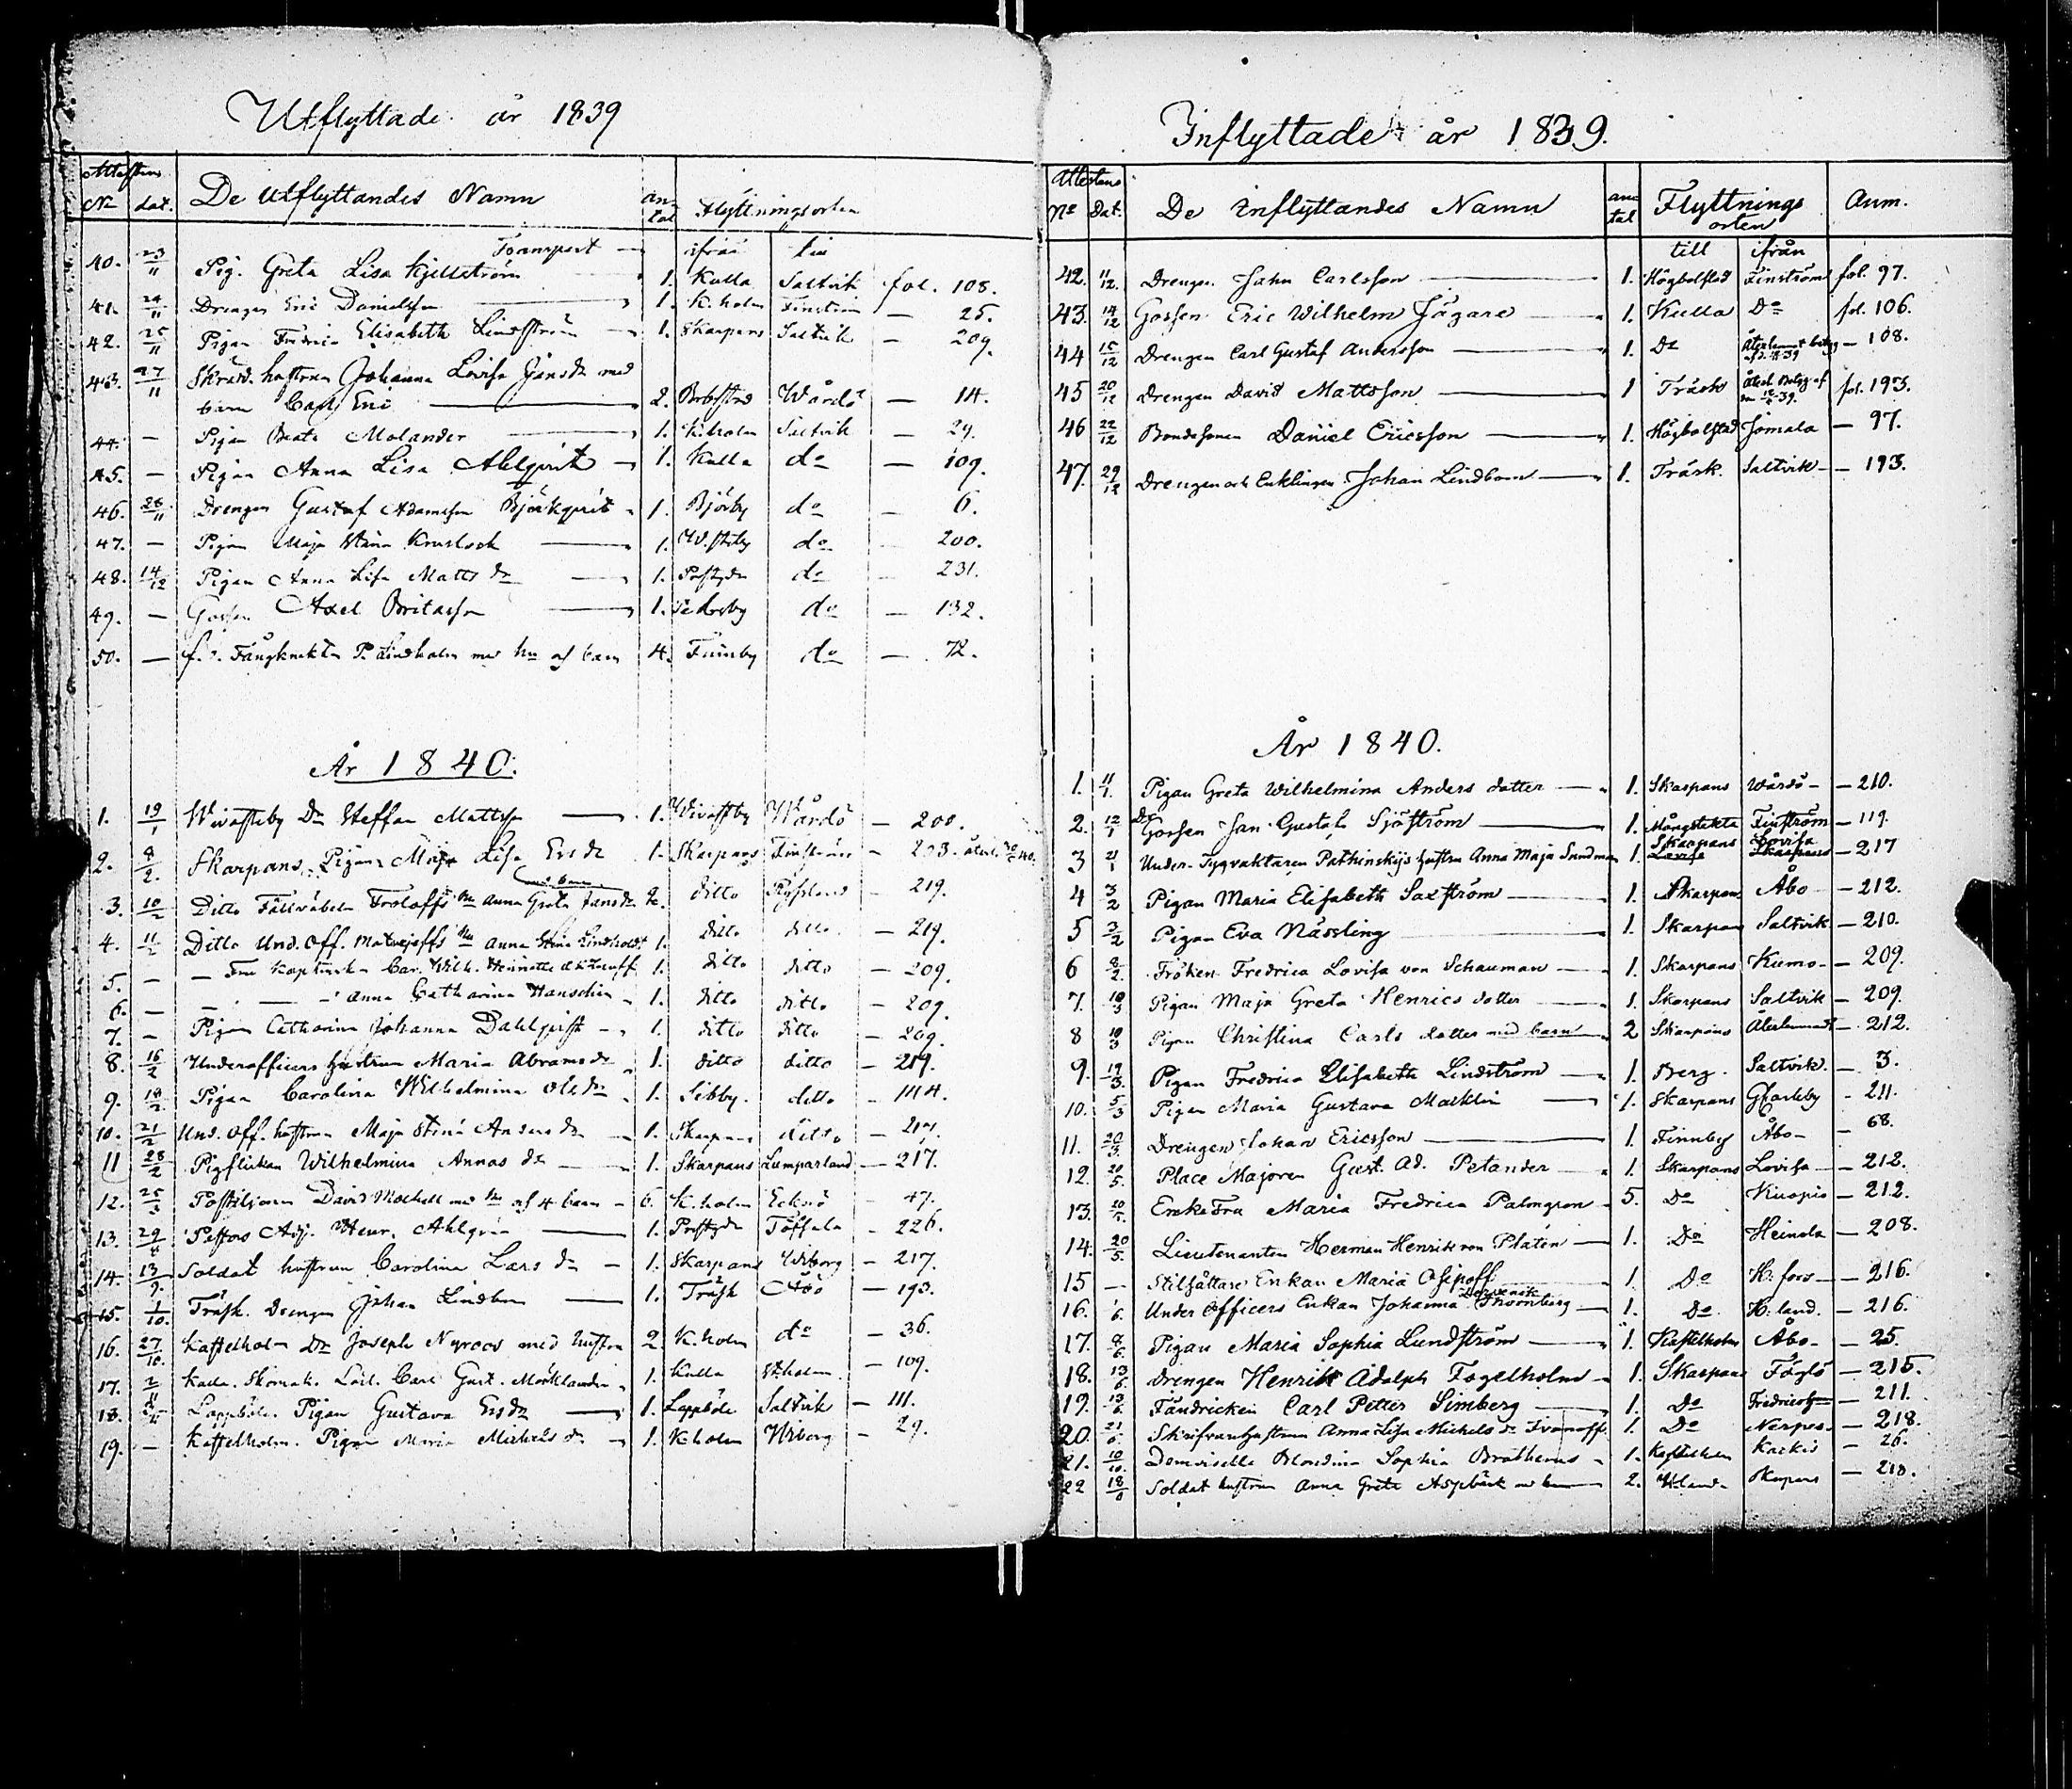 Utflyttade år 1839
Attestens
No dat. De utflyttandes Namn an-tal Flyttningsorten
Transport — ifrån till
40. 23/11 Pig. Greta Lisa Kjellström 1. Kulla Saltvik fol. 108.
41. 24/11 Drengen Eric Danielsson 1. K.holm Finström — 25.
42. 25/11 Pigan Fredrica Elisabeth Lindström 1. Skarpans Saltvik — 209.
43. 27/11 Skrädd. hustrun Johanna Lovisa Jansdr med
barn Carl Eric 2. Wårdö — 14.
44. — Pigan Beata Molander 1. K.holm Saltvik — 29.
45. — Pigan Anna Lisa Ahlqvist 1. Kulla do — 109.
46. 28/11 Drengen Gustaf Adamsson Björkqvist 1. Björby do — 6.
47. — Pigan Maja Stina 1. do — 200.
48. 14/12 Pigan Anna Lisa Matts dr 1. do — 231.
49. — Gossen Axel Britasson 1. do — 132.
50. — f.d. Fångknekten P. Lindholm med hu och barn 4. Finnby do — 72.
År 1840.
1. 19/1 Wivastby Dr Steffan Mattsson 1. Wivastby Wårdö — 200.
2. 4/2. Skarpans, Pigan Maja Lisa Ersdr 1. Skarpans Finström — 203.
med barn
3. 10/2 Ditto Fältväbeln Troloffs hu Anna Greta Jansdr 2. ditto Ryssland — 219.
4. 11/2 Ditto Und. Off. Matvejeffs hu Anna Stina Lindholdt 1. ditto ditto — 219.
5. — — Fru Car. Wilh. Henriette 1. ditto ditto — 209.
6. — — Anna Catharina 1. ditto ditto — 209.
7. — Pigan Catharina Johanna Dahlqvist 1. ditto ditto — 209.
8. 16/2 Underofficers hustrun Maria Abramsdr 1. ditto ditto — 219.
9. 18/2. Pigan Carolina Wilhelmina Olsdr 1. Sibby. ditto — 144.
10. 21/2 Und. Off. hustrun Maja Stina Anders dr 1. Skarpans ditto — 217.
11 28/2 Pigflickan Wilhelmina Annas dr 1. Skarpans Lumparland — 217.
12. Postiljonen David med hu och 4 barn 6. K.holm Eckerö — 47.
13. 29/4 Pastors Adj. Henr. Ahlgren 1. Prestgdn — 226.
14. 13/9. Soldat hustrun Carolina Lars dr 1. Skarpans Wiborg — 217.
15. 1/10. Träsk. Drengen Johan Lindbom 1. Träsk Åbo — 193.
16. 27/10. Kastelholm Dr Joseph Nyroos med hustru 2. K.holm do — 36.
17. Kulla. Skomak. Lärl. Carl Gust. Mörklander 1. Kulla St.holm — 109.
18. Lappböle. Pigan Gustava Ersdr 1. Lappböle Saltvik — 111.
19. — Kastelholm. Pigan Maria Michels dr 1. K.holm Wiborg — 29.
Inflyttade år 1839.
Attestens
No Dat. De Inflyttandes Namn an-tal Flyttnings orten Anm.
till ifrån
42. 11/12. Drengen Jahn Carlsson 1. Högbolstad Finström fol. 97.
43. 14/12 Gossen Eric Wilhelm Jägare 1. Kulla Do fol. 106.
44 15/12 Drengen Carl Gustaf Andersson 1. Do — 108.
45 20/12 Drengen David Mattsson 1 Träsk fol. 193.
46 22/12 Bondesonen Daniel Ericsson 1. Högbolstad Jomala — 97.
47. 29/12 Drengen och Enklingen Johan Lindbom 1. Träsk. Saltvik — 193.
År 1840.
1. 11/1. Pigan Greta Wilhelmina Anders dotter 1. Skarpans Wårdö — 210.
2. 12/1 Gossen Jan Gustaf Sjöström 1. Mångstekta Finström — 119.
Skarpans Lovisa
3 21/1 Under-Tygvaktaren Pathinskijs hustru Anna Maja Sundman 1. Lovisa Skarpans — 217
4 3/2 Pigan Maria Elisabeth Saxström 1. Skarpans Åbo — 212.
5 3/2 Pigan Eva Nässling 1. Skarpans Saltvik — 210.
6 8/2. Fröken Fredrica Lovisa von Schauman 1. Skarpans Kumo — 209.
7. 10/3 Pigan Maja Greta Henrics dotter 1. Skarpans Saltvik — 209.
8 10/3 Pigan Christina Carls dotter med barn 2 Skarpans Återkommit — 212.
9. 19/3. Pigan Fredrica Elisabeth Lindström 1. Berg. Saltvik. — 3.
10. 5/3 Pigan Maria Gustava Macklin 1. Skarpans GCarleby — 211.
11. 20/3. Drengen Johan Ericsson 1. Finnby Åbo — 68.
12. 20/5. Place Majoren Gust. Ad. Petander 1. Skarpans Lovisa — 212.
13. 20/5. Enke Fru Maria Fredrica Palmgren 5. Do Kuopio — 212.
14. 20/5. Lieutenanten Herman Henrik von Platen 1. Do Heinola — 208.
15 — Enkan Maria Osipoff 1. Do H.fors — 216.
16. Under Officers Enkan Johanna Thornberg 1. Do. — 216.
17. 8/6 Pigan Maria Sophia Lundström 1. Kastelholm Åbo — 25.
18. 13/6 Drengen Henrik Adolph Fogelholm 1. Skarpans Föglö — 215.
19. 13/6 Fändricken Carl Petter Simberg 1. Do — 211.
20. Skrifvarehustrun Anna Lisa Michels dr Ivanoff 1. Do Nerpes — 218.
21. 10/10. Demoiselle Blondina Sophia 1. Kastelholm — 26.
22 Soldat hustrun Anna Greta Aspbäck 2. Skarpans — 218.